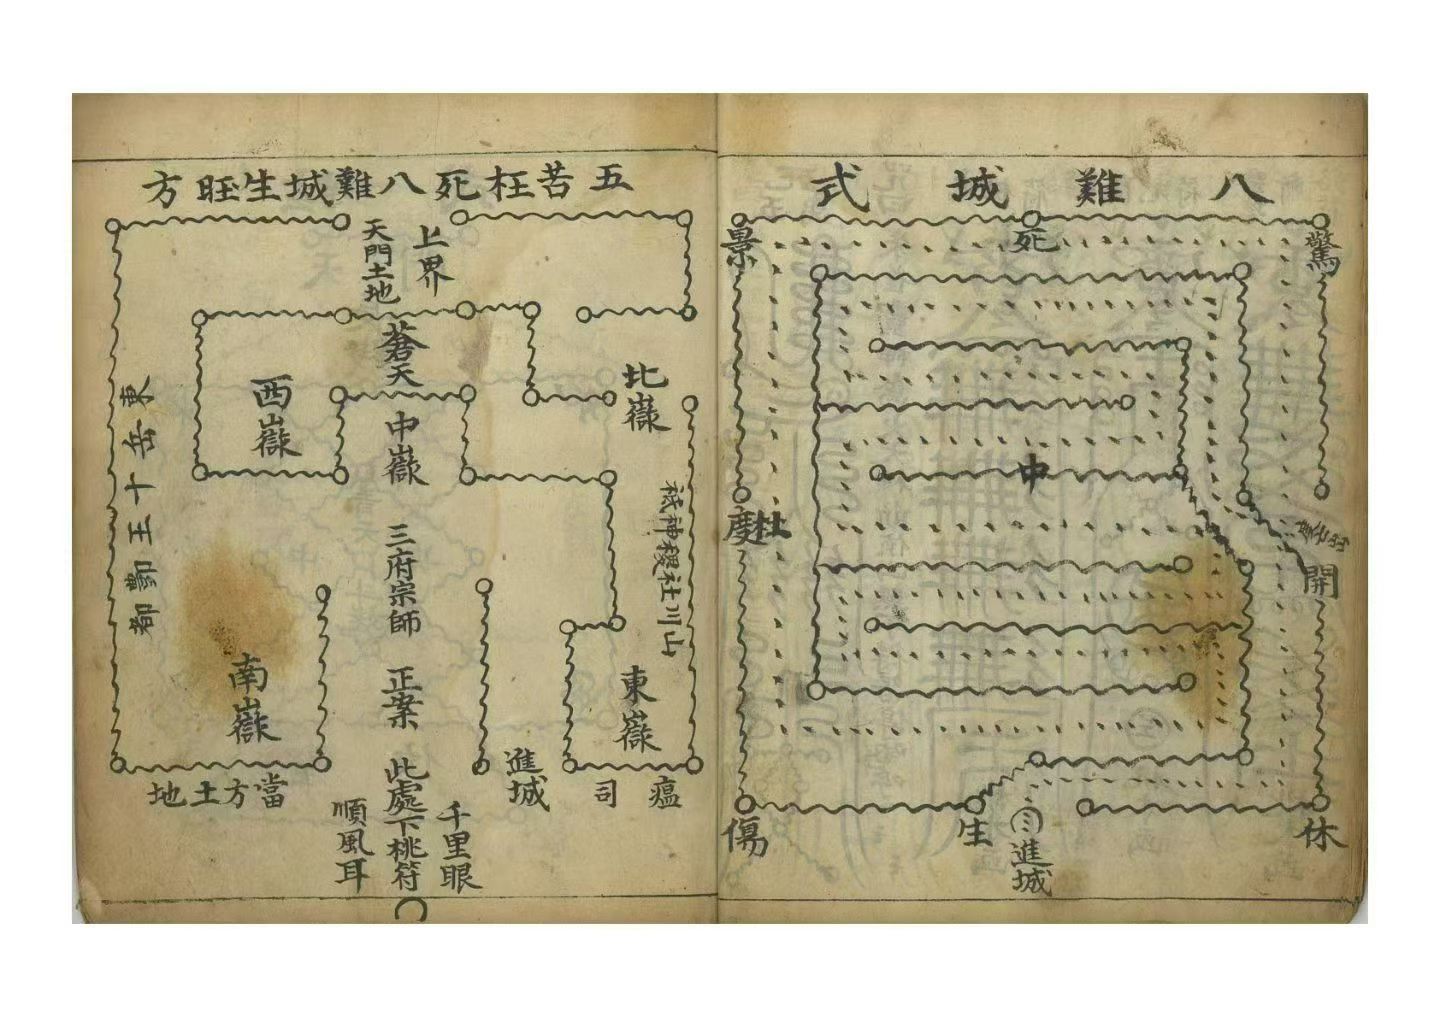 八難城式
驚
死
景
中
度杜
度去出
開
休
進城
生
傷
五苦枉死八難城生旺方
上界
天門土地
蒼天
中嶽
三府宗師
正案
此處下桃符
北嶽
西嶽
東岳十王酆都
南嶽
東嶽
山川社稷神祇
瘟司
進城
千里眼
順風耳
當方土地